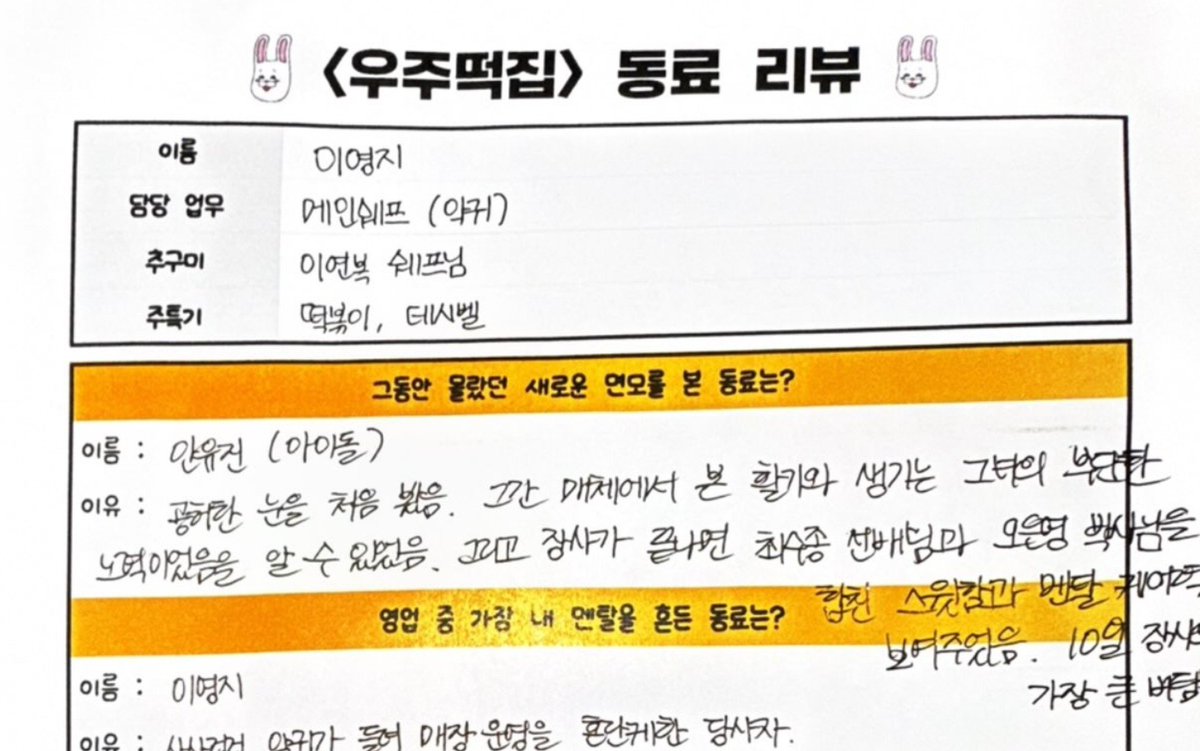 <우주떡집> 동료 리뷰
이름 이영지
담당 업무 메인쉐프 (악귀)
추구미 이연복 쉐프님
주특기 떡볶이, 데시벨
그동안 몰랐던 새로운 면모를 본 동료는?
이름 : 안유진 (아이돌)
이유 : 공허한 눈을 처음 봤음. 그간 매체에서 본 활기와 생기는 그녀의 부단한
노력이었음을 알 수 있었음. 그리고 장사가 끝나면 최수종 선배님과 오은영 박사님을
합친 스윗함과 멘탈 케어력
보여주었음. 10일 장사
가장 큰 버팀
영업 중 가장 내 멘탈을 흔든 동료는?
이름 : 이영지
이유 : 악귀가 들어 매장 운영을 혼란케한 당사자.